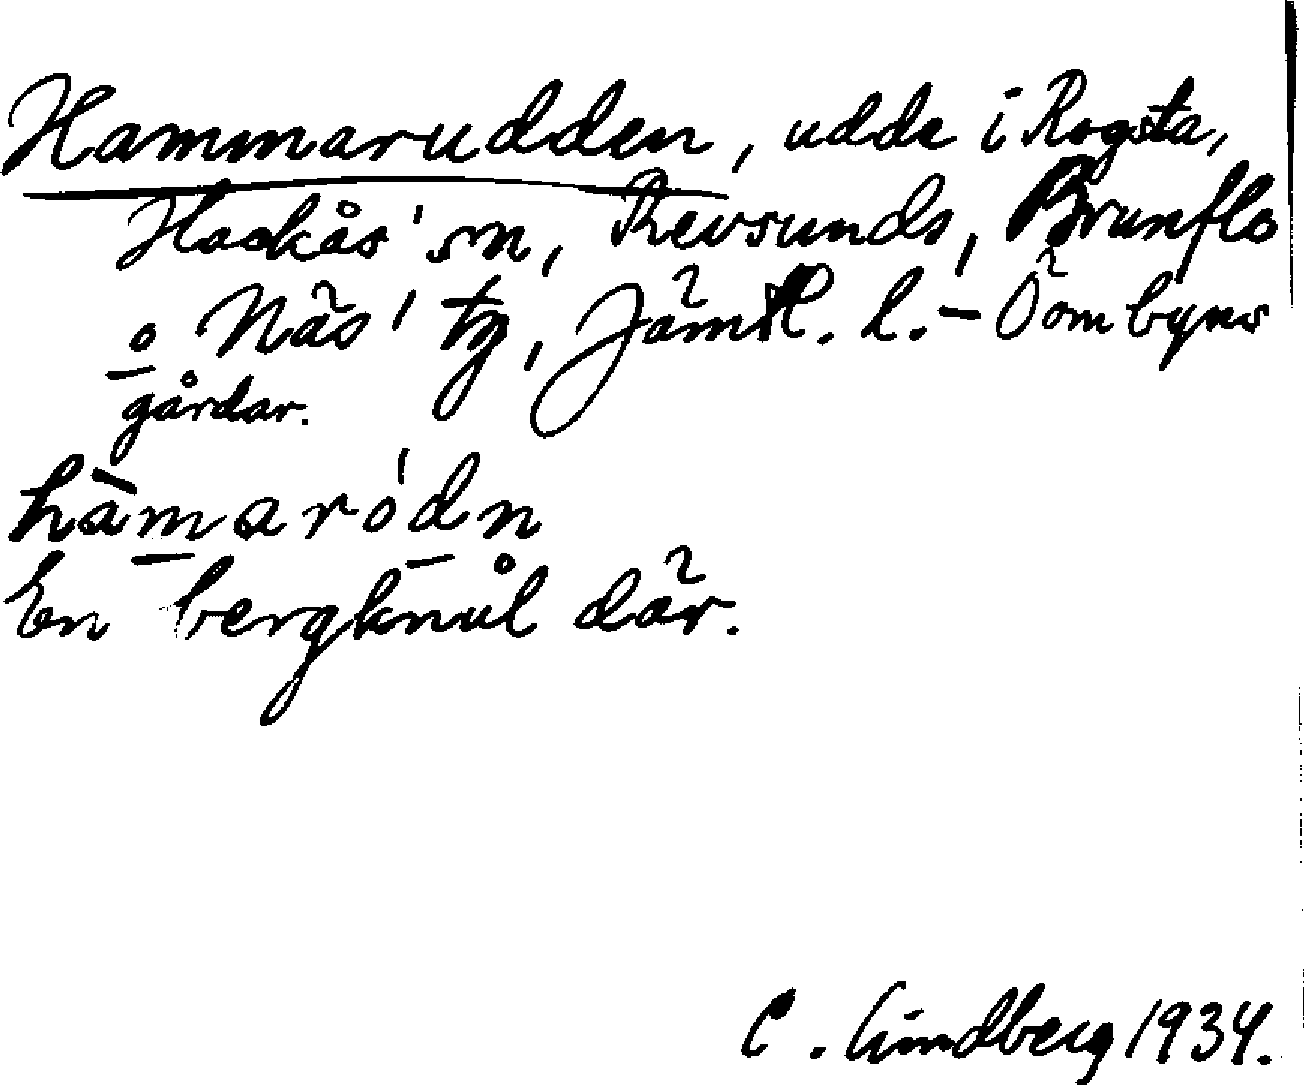 Hammarudden, udde i Rogsta,
Hackås' sn, Revsunds, Brunflo
o Näs' tg, Jämtl. l. – Ö om byns
gårdar.
hàmaródn
En bergknúl där.
C. Lindberg 1934.